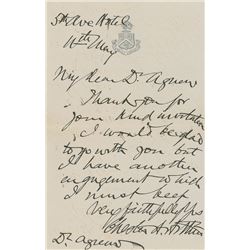 5th Ave Hotel
11th May
My dear Dr Agnew
Thank you for
your kind invitation
I would be glad
to go with you but
I have another
engagement which
I must keep
Very faithfully yrs
Chester A Arthur
Dr Agnew